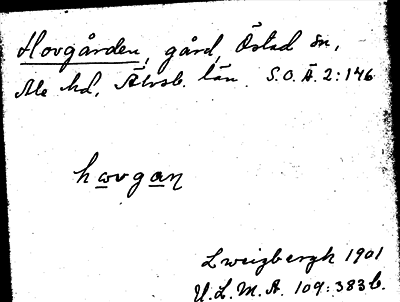 Hovgården, gård, Östad sn,
Ale hd, Älvsb. län. S.O.Ä. 2:146
havgan
L. weizbergh 1901
U.L.M.A. 109:383b.